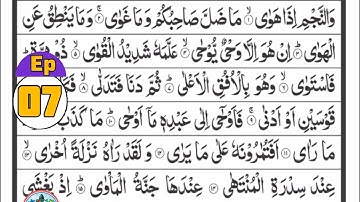 وَالنَّجْمِ اِذَا هَوٰى ۙ﴿۱﴾ مَا ضَلَّ صَاحِبُكُمْ وَمَا غَوٰى ۚ﴿۲﴾ وَمَا يَنْطِقُ عَنِ
الْهَوٰى ؕ﴿۳﴾ اِنْ هُوَ اِلَّا وَحْيٌ يُّوْحٰى ۙ﴿۴﴾ عَلَّمَهٗ شَدِيْدُ الْقُوٰى ۙ﴿۵﴾ ذُوْ مِرَّةٍ ؕ
فَاسْتَوٰى ۙ﴿۶﴾ وَهُوَ بِالْاُفُقِ الْاَعْلٰى ؕ﴿۷﴾ ثُمَّ دَنَا فَتَدَلّٰى ۙ﴿۸﴾
قَوْسَيْنِ اَوْ اَدْنٰى ۚ﴿۹﴾ فَاَوْحٰۤى اِلٰى عَبْدِهٖ مَاۤ اَوْحٰى ؕ﴿۱۰﴾ مَا كَذَبَ
مَا رَاٰى ﴿۱۱﴾ اَفَتُمٰرُوْنَهٗ عَلٰى مَا يَرٰى ﴿۱۲﴾ وَلَقَدْ رَاٰهُ نَزْلَةً اُخْرٰى ۙ﴿۱۳﴾
عِنْدَ سِدْرَةِ الْمُنْتَهٰى ﴿۱۴﴾ عِنْدَهَا جَنَّةُ الْمَاْوٰى ؕ﴿۱۵﴾ اِذْ يَغْشَى
Ep
07